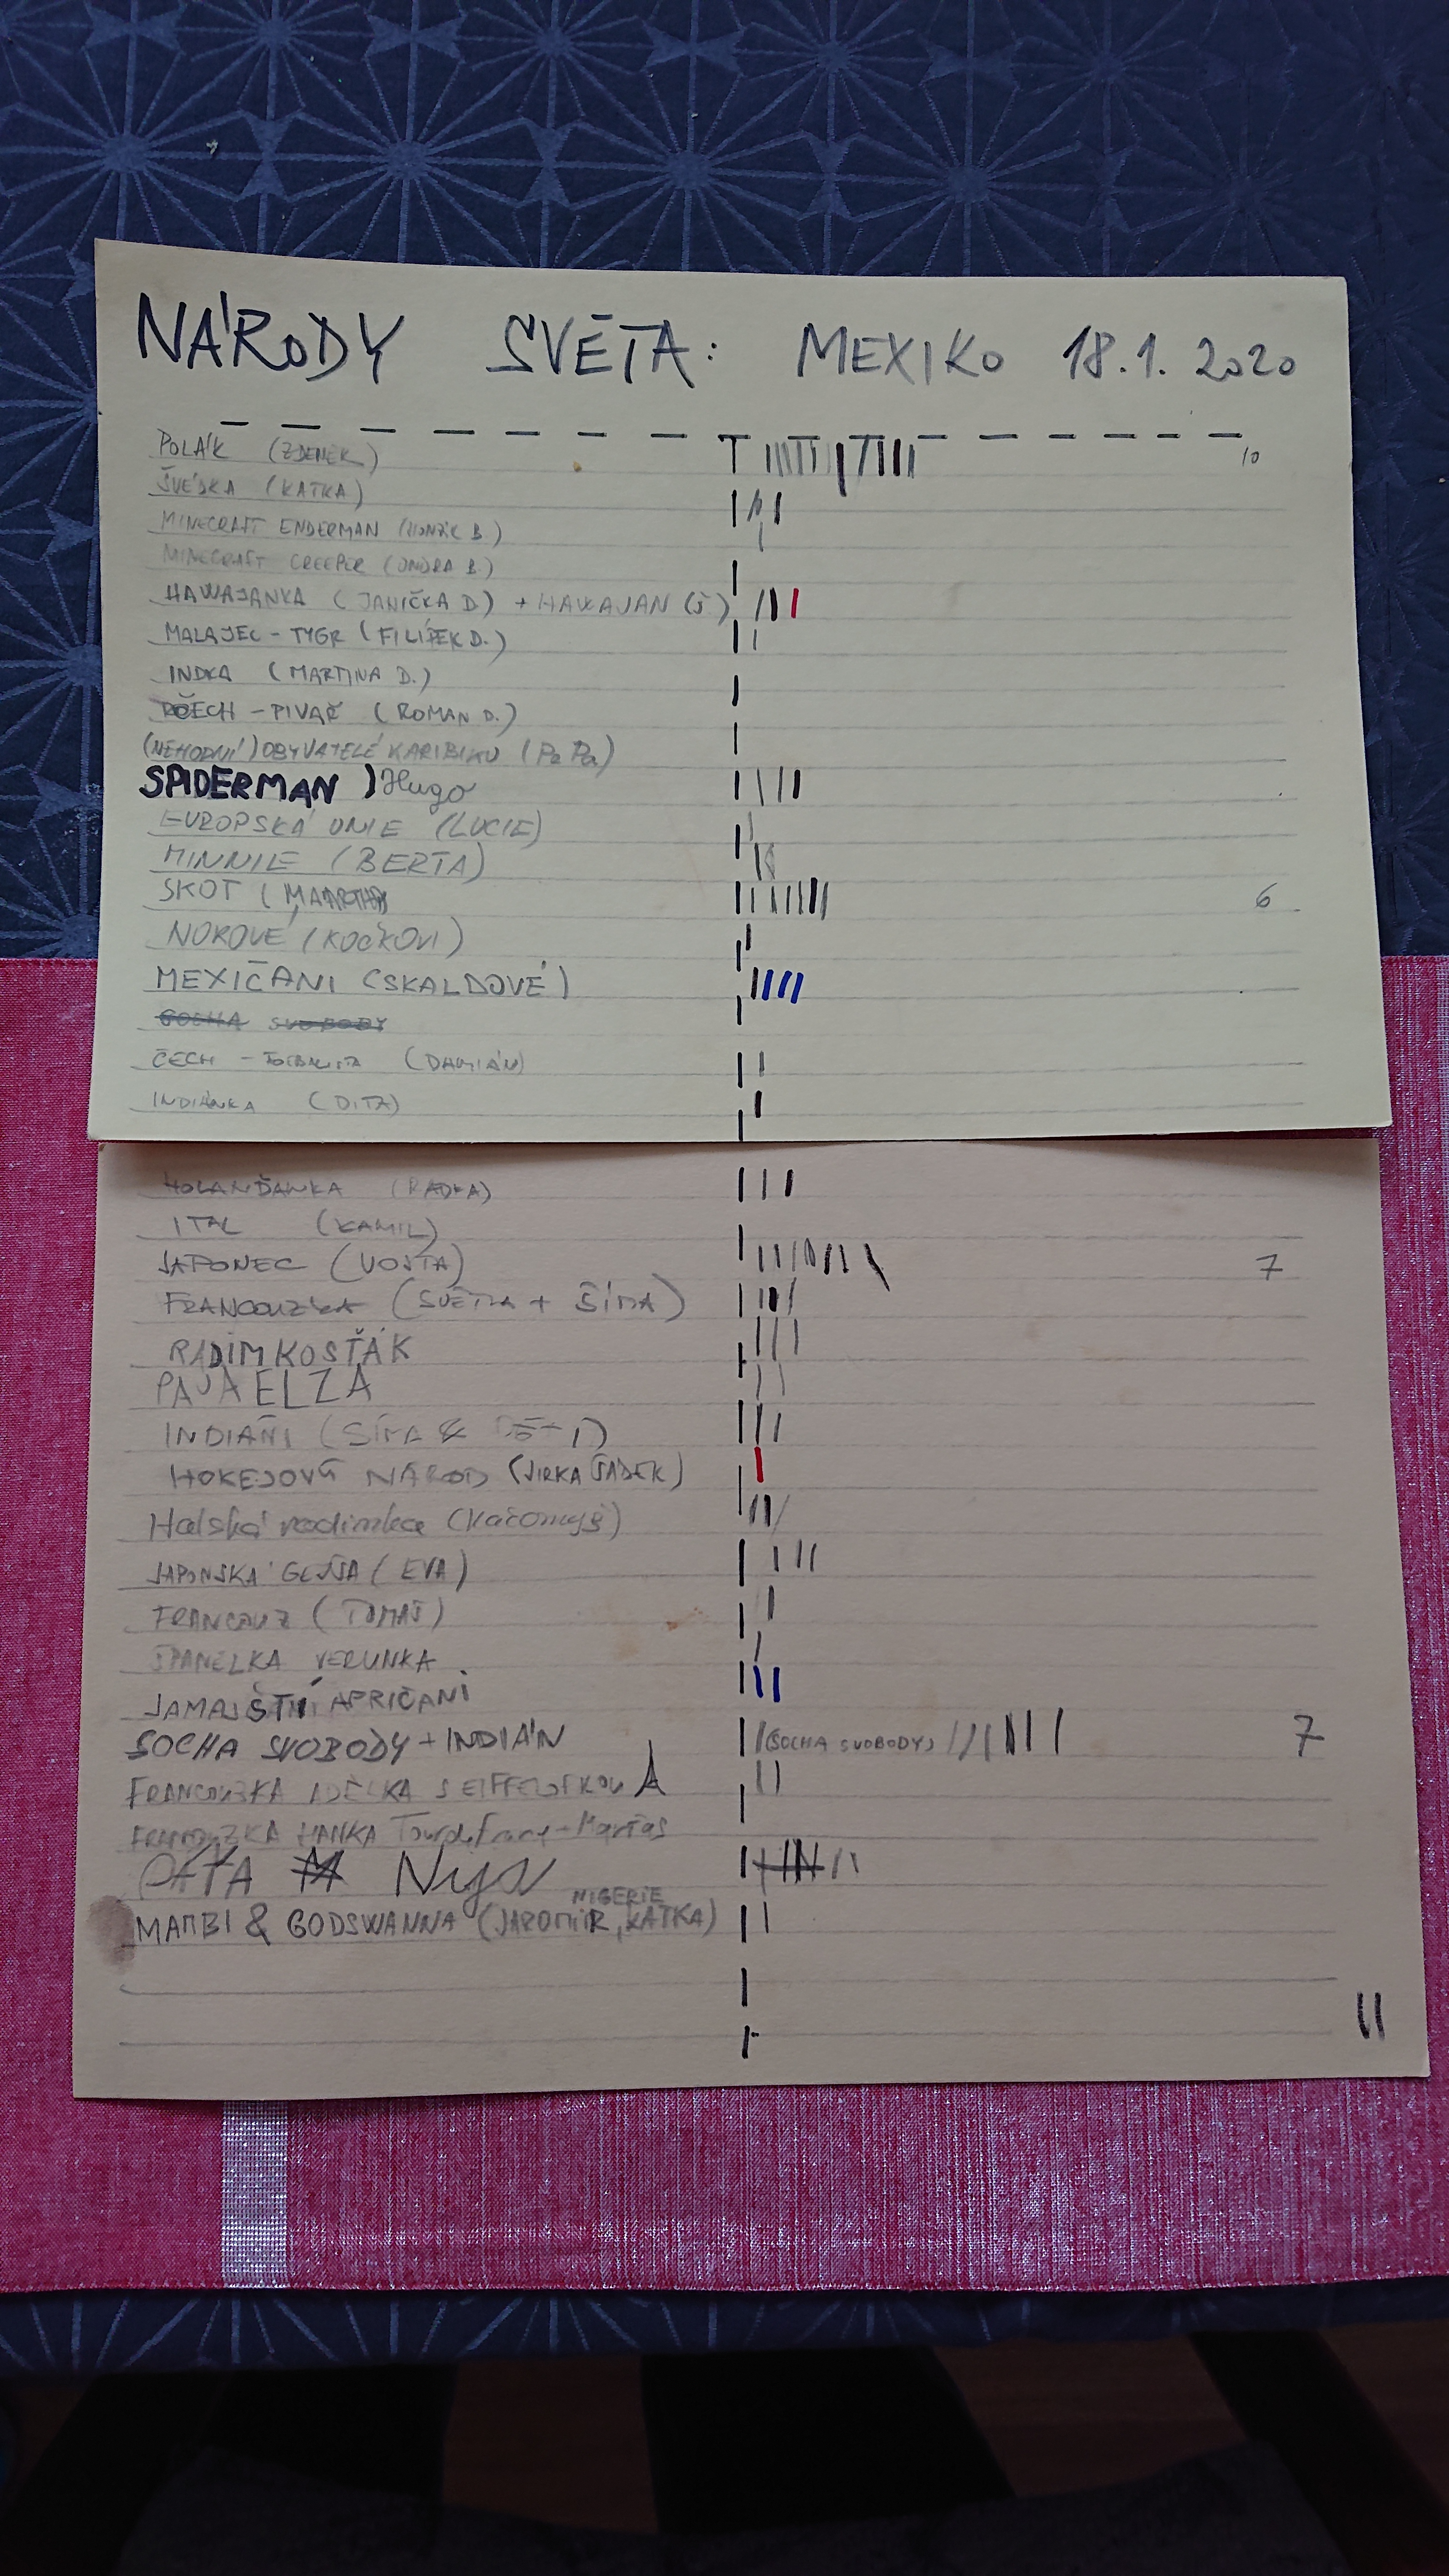 NÁRODY SVĚTA: MEXIKO 18.1. 2020
POLÁK (ZDENĚK) 10
ŠVÉDKA (KATKA)
MINECRAFT ENDERMAN (HONZÍK B.)
MINECRAFT CREEPER (ONDRA B.)
HAWAJANKA (JANIČKA D) + HAWAJAN (J.)
MALAJEC - TYGR (FILÍPEK D.)
INDKA (MARTINA D.)
ČECH - PIVAŘ (ROMAN D.)
(NEHODNÍ) OBYVATELÉ KARIBIKU (Pa Pa)
SPIDERMAN ) Hugo
EVROPSKÁ UNIE (LUCIE)
MINNIE (BERTA)
SKOT ( 6
NOROVÉ (KOČKOVI)
MEXIČANI (SKALDOVÉ)
SOCHA SVOBODY
ČECH - (DAMIÁN)
INDIÁNKA (DITA)
HOLANĎANKA (RADKA)
ITAL (KAMIL)
JAPONEC (VOJTA) 7
FRANCOUZKA (SVĚTLA + SÍMA)
RADIM KOSŤÁK
PAJA ELZA
INDIÁNI (SÍMA & DĚTI)
HOKEJOVÝ NÁROD (JIRKA ŠÁDEK)
(Kačomyš)
JAPONSKÁ GEJŠA (EVA)
FRANCOUZ (TOMÁŠ)
ŠPANELKA VERUNKA
JAMAJŠTÍ APRIČANI
SOCHA SVOBODY + INDIÁN (SOCHA SVOBODY) 7
FRANCOUZKA ADÉLKA S EIFFELOFKOU
FRANCOUZKA HANKA
NIGERIE
MAMBI & GODSWANNA (JAROMÍR, KATKA)